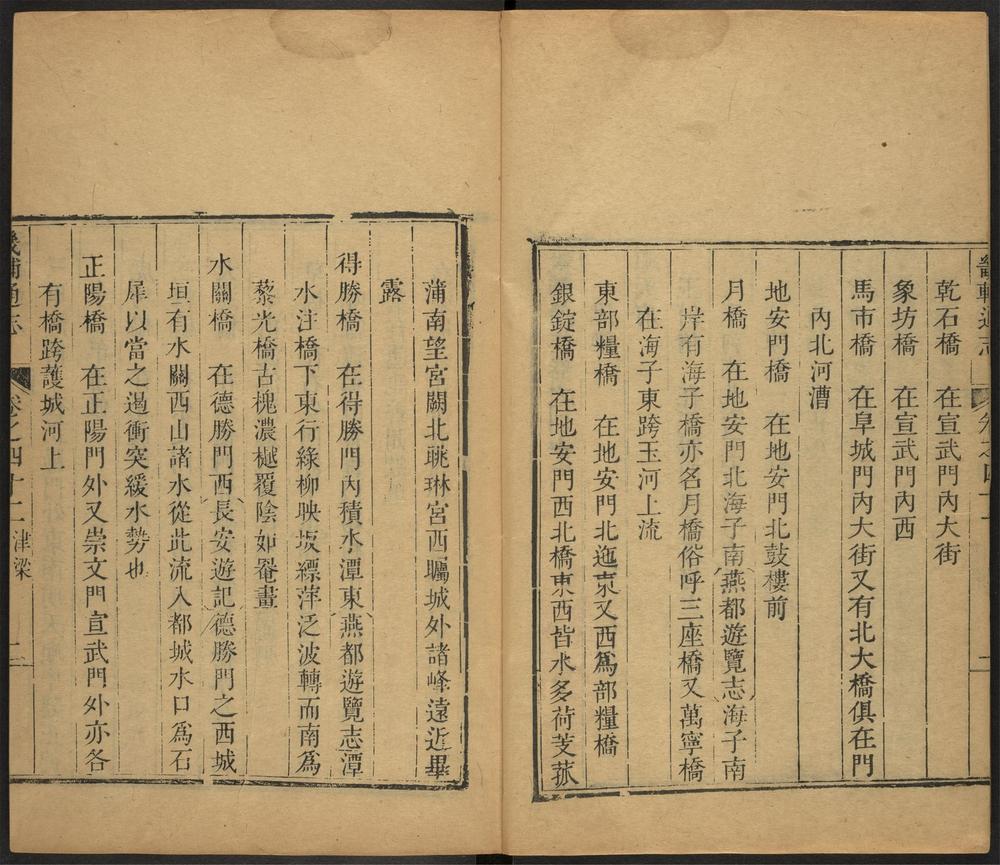 畿輔通志 卷之四十二
乾石橋 在宣武門內大街
象坊橋 在宣武門內西
馬市橋 在阜城門內大街又有北大橋俱在門
內北河漕
地安門橋 在地安門北鼓樓前
月橋 在地安門北海子南燕都遊覽志海子南
岸有海子橋亦名月橋俗呼三座橋又萬寧橋
在海子東跨玉河上流
東部糧橋 在地安門北迤東又西為部糧橋
銀錠橋 在地安門西北橋東西皆水多荷芰菰
蒲南望宮闕北眺琳宮西矚城外諸峰遠近畢
露
得勝橋 在得勝門內積水潭東燕都遊覽志潭
水注橋下東行綠柳映坂縹萍泛波轉而南為
蔡光橋古槐濃樾覆陰如罨畫
水關橋 在德勝門西長安遊記德勝門之西城
垣有水關西山諸水從此流入都城水口為石
犀以當之遏衝突緩水勢也
正陽橋 在正陽門外又崇文門宣武門外亦各
有橋跨護城河上
畿輔通志 卷之四十二 津梁 二